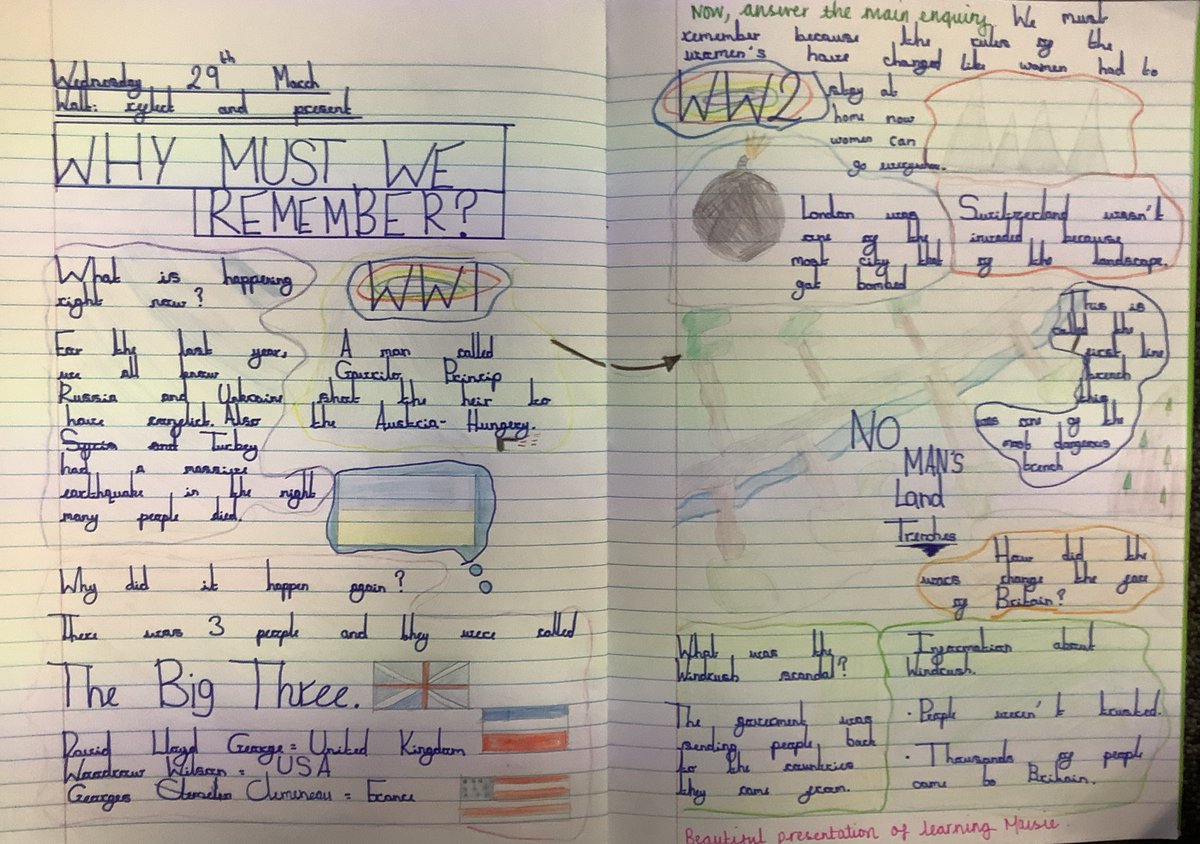 Wednesday 29th March
Walt: reflect and present
WHY MUST WE
REMEMBER?
What is happening
right now?
For the last year,
we all know
Russia and Ukraine
have conflict. Also
Syria and Turkey
had a massive
earthquake in the night
many people died.
WW1
A man called
Gavrilo Princip
shot the heir to
the Austria-Hungery.
Why did it happen again?
There was 3 people and they were called
The Big Three.
David Lloyd George = United Kingdom
Woodrow Wilson = USA
Georges Clemeneau = France
Now, answer the main enquiry. We must
remember because the rules of the
women's have changed like women had to
WW2
stay at
home now
women can
go
London was
one of the
most city that
got bombed
Switzerland wasn't
invaded because
of the landscape.
This is
called the
first line
trench
this
was one of the
most dangerous
trench
NO
MAN'S
Land
Trenches
How did the
wars change the face
of Britain?
What was the
Windrush scandal?
The goverment was
sending people back
to the countries
they came from.
Information about
Windrush.
· People weren't trusted.
· Thousands of people
came to Britain.
Beautiful presentation of learning Maisie.